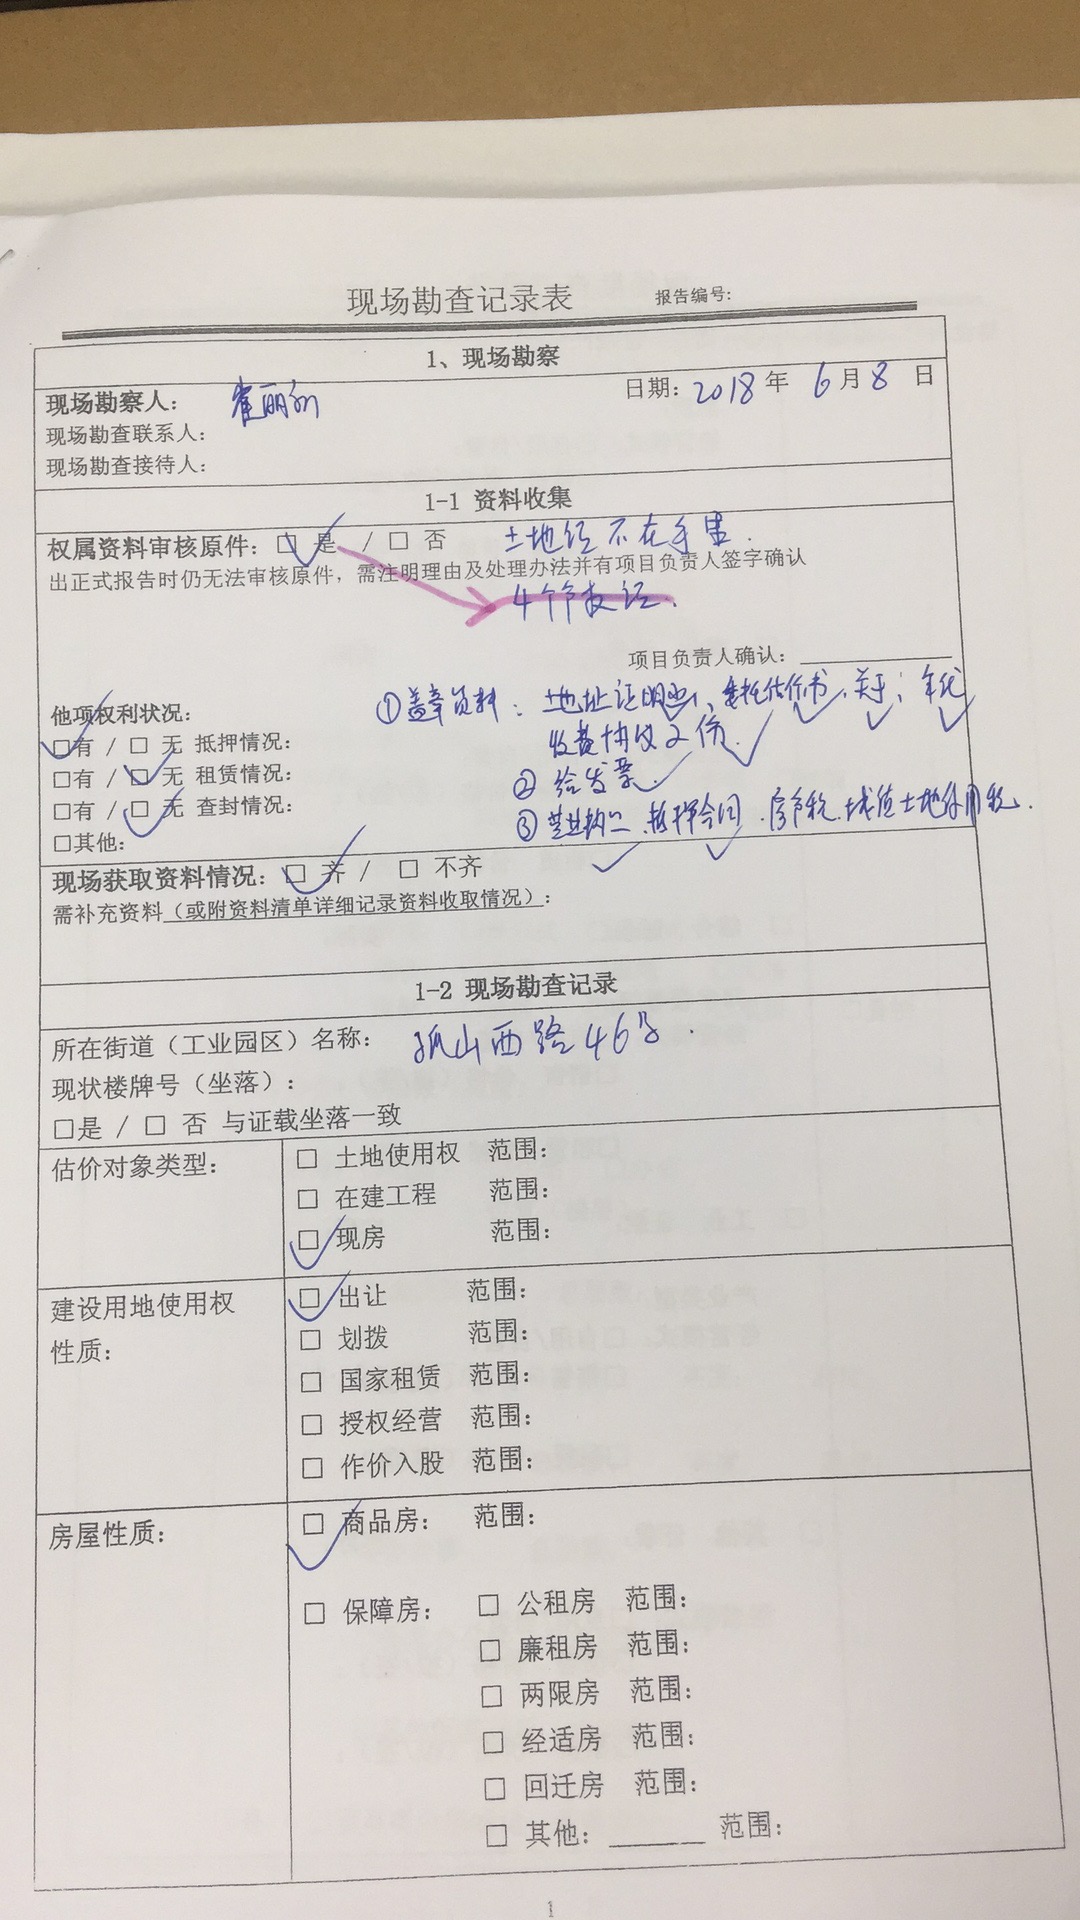 现场勘查记录表 报告编号:
1、现场勘察
现场勘察人: 日期: 2018 年 6 月 8 日
现场勘查联系人:
现场勘查接待人:
1-1 资料收集
权属资料审核原件: □ 是 / □ 否 土地证不在手里.
出正式报告时仍无法审核原件，需注明理由及处理办法并有项目负责人签字确认
4个产权证.
项目负责人确认:
他项权利状况: ①盖章资料: 地址证明 、委托估价书、关于, 年代
□有 / □ 无 抵押情况: 收费协议2份、
□有 / □ 无 租赁情况: ②给发票
□有 / □ 无 查封情况: ③ 、抵押合同、房产税、城镇土地使用税.
□其他:
现场获取资料情况: □ 齐 / □ 不齐
需补充资料（或附资料清单详细记录资料收取情况）:
1-2 现场勘查记录
所在街道（工业园区）名称: 孤山西路46号.
现状楼牌号（坐落）:
□是 / □ 否 与证载坐落一致
估价对象类型: □ 土地使用权 范围:
□ 在建工程 范围:
□ 现房 范围:
建设用地使用权 □ 出让 范围:
性质: □ 划拨 范围:
□ 国家租赁 范围:
□ 授权经营 范围:
□ 作价入股 范围:
房屋性质: □ 商品房: 范围:
□ 保障房: □ 公租房 范围:
□ 廉租房 范围:
□ 两限房 范围:
□ 经适房 范围:
□ 回迁房 范围:
□ 其他: ______ 范围:
1